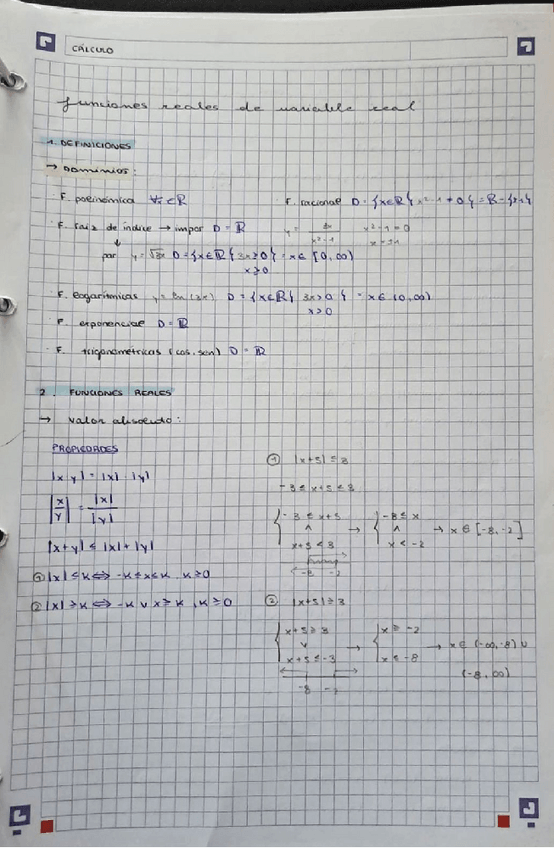 CÁLCULO
funciones reales de variable real
1. DEFINICIONES
→ DOMINIOS:
F. polinómica ∀x ∈ ℝ
F. racional D = {x∈ℝ { x²-1 ≠ 0 } = ℝ - {±1}
F. raiz de índice → impar D = ℝ
y = 3x / x²-1   x²-1 = 0
x = ±1
par y = √3x D = {x∈ℝ { 3x ≥ 0 } = x ∈ [0, ∞)
x ≥ 0
F. logarítmicas y = ln (3x) D = {x∈ℝ } 3x > 0 } = x ∈ (0, ∞)
x > 0
F. exponencial D = ℝ
F. trigonométricas (cos, sen) D = ℝ
2. FUNCIONES REALES
→ valor absoluto:
PROPIEDADES
|x·y| = |x| · |y|
|x/y| = |x|/|y|
|x+y| ≤ |x| + |y|
① |x| ≤ K ⟺ -K ≤ x ≤ K, K ≥ 0
② |x| ≥ K ⟺ -K ∨ x ≥ K, K ≥ 0
① |x+5| ≤ 3
-3 ≤ x+5 ≤ 3
{ -3 ≤ x+5 → { -8 ≤ x → x ∈ [-8, -2]
∧ ∧
x+5 ≤ 3   x ≤ -2
-8 -2
② |x+5| ≥ 3
{ x+5 ≥ 3 → { x ≥ -2 → x ∈ (-∞, -8) ∪
∨
x+5 ≤ -3   x ≤ -8
(-8, ∞)
-8 -2